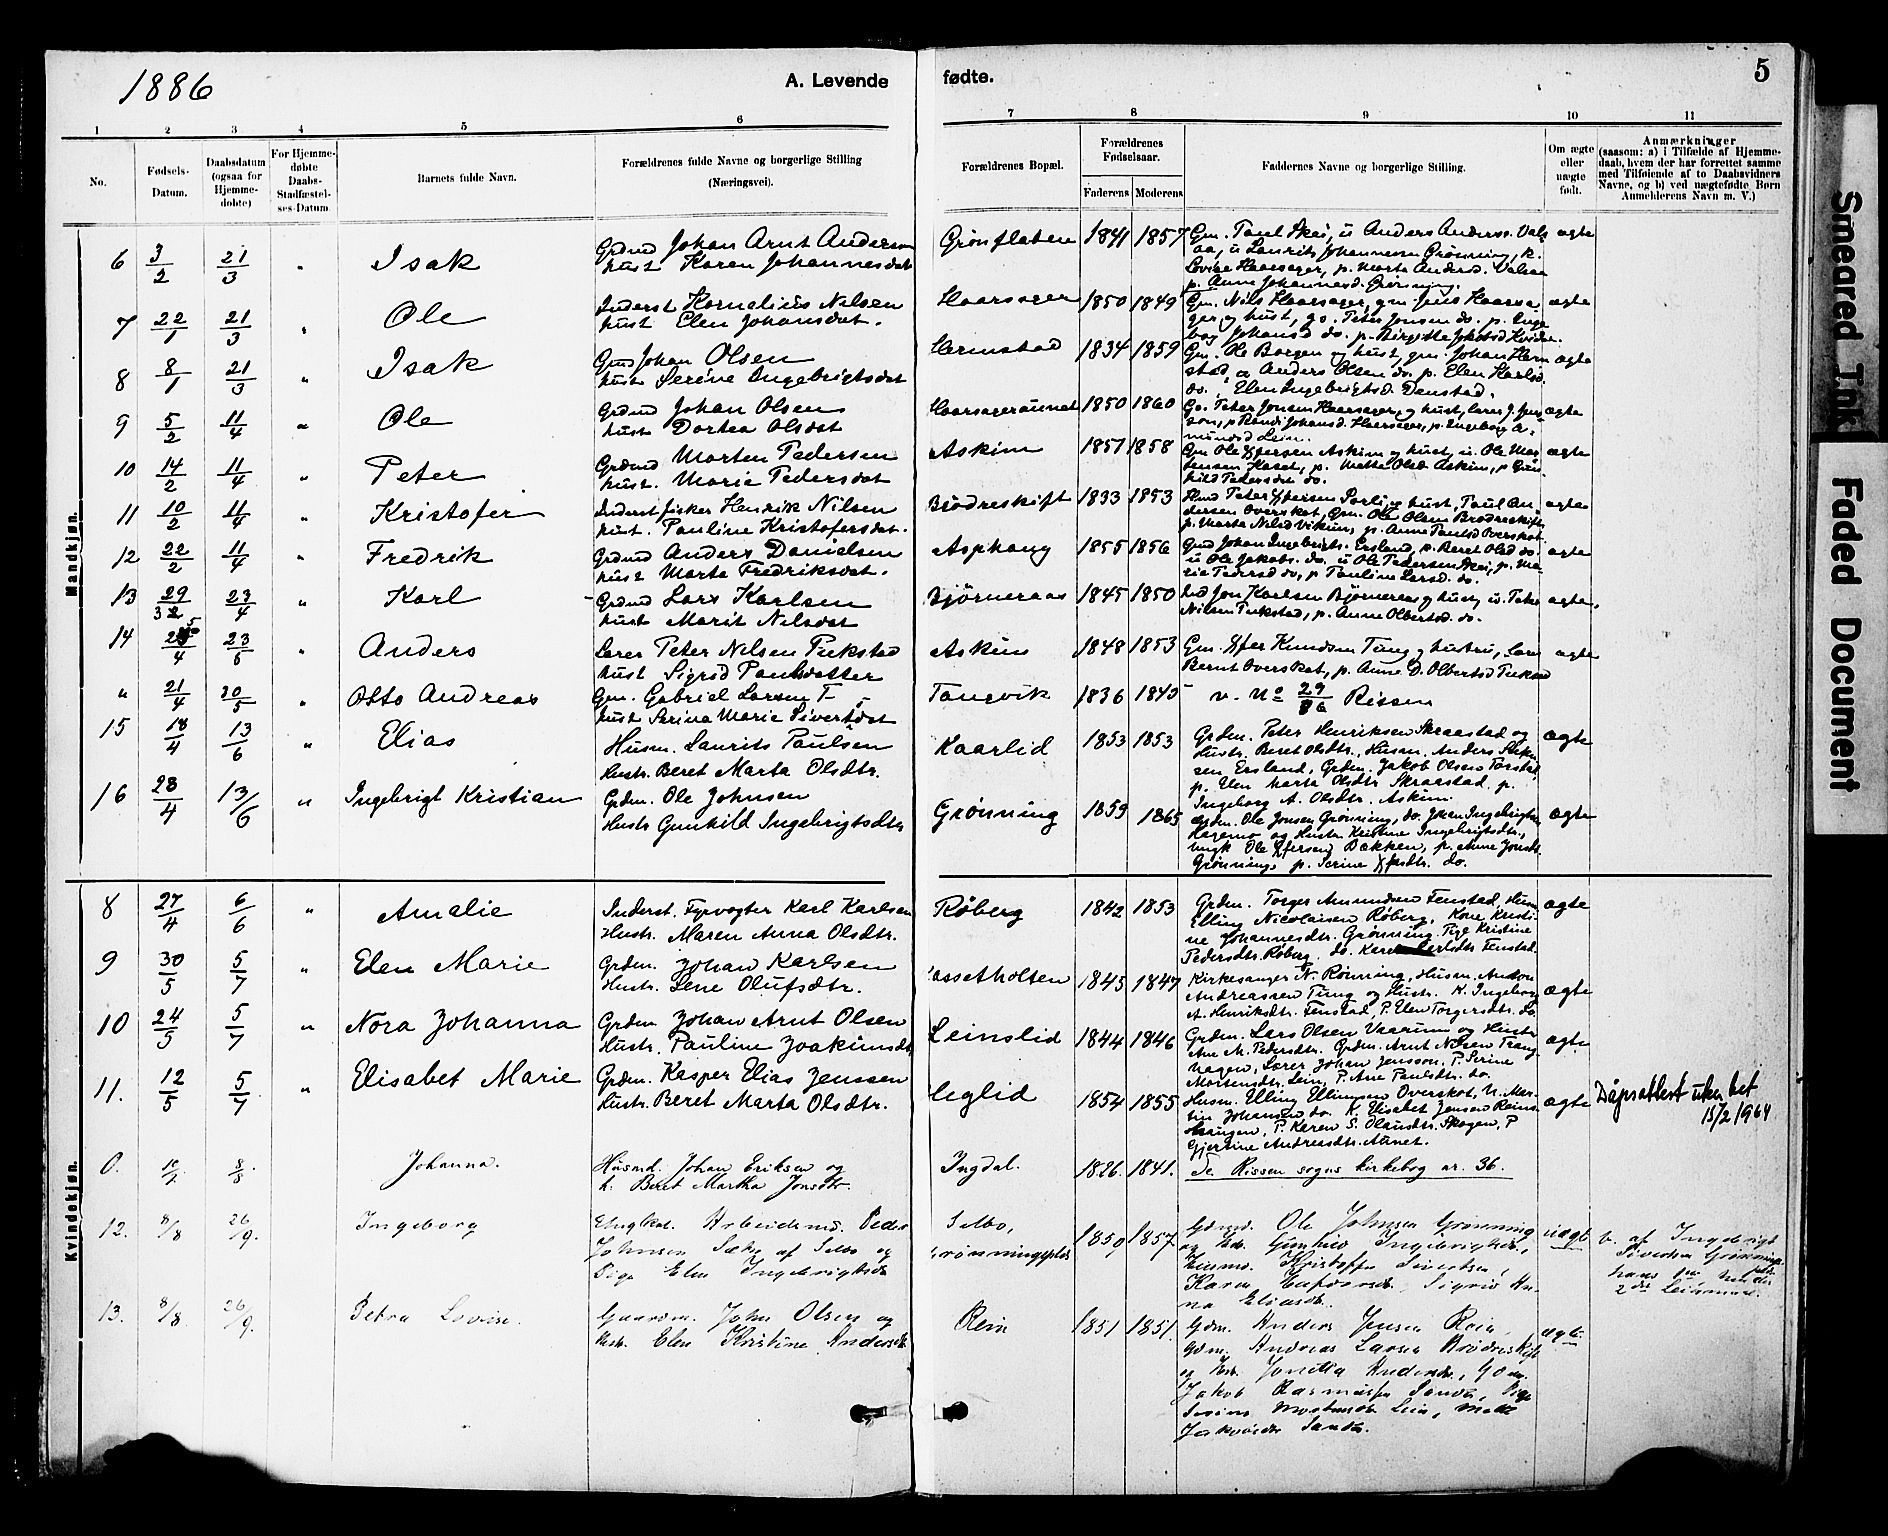 1886
A. Levende
fødte.
5
1 2 3 4 5 6 7 8 9 10 11
No.
Fødsels-Datum.
Daabsdatum (ogsaa for Hjemme-døbte)
For Hjemme-døbte Daabs-Stadfæstel-ses-Datum.
Barnets fulde Navn.
Forældrenes fulde Navne og borgerlige Stilling (Næringsvei).
Forældrenes Bopæl.
Forældrenes Fødselsaar.
Faderens Moderens
Faddernes Navne og borgerlige Stilling.
Om ægte eller uægte født.
Anmærkninger
(saasom: a) i Tilfælde af Hjemme-
daab, hvem der har forrettet samme
med Tilføiende af to Daabsvidners
Navne, og b) ved uægtefødte Børn
Anmelderens Navn m. V.)
Mandkjøn.
6 3/2 21/3 " Isak
Grdmd Johan Arnt Anderssen
hust Karen Johannesdat
Grønflaten 1841 1857
Gm. Paul Skei, u Anders Anderss. Vals
aa, u Laurits Johannesen Grønning, k.
Lovise Haarsager, p. Marta Andersd. Valsaa
p. Anne Johannesd. Grønning.
ægte
7 22/1 21/3 " Ole
Inderst Kornelius Nilsen
hust Elen Johansdat.
Haarsager 1850 1849
Gm. Nils Haarsager, gm Jens Haarsa
ger og hust, gs. Peter Jensen do. p. Inge
borg Johansd do. p. Birgitte Jakobsd
ægte
8 8/1 21/3 " Isak
Gmd Johan Olsen
hust Serine Ingebrigtsdat
Hermstad 1834 1859
Gm. Ole Borgen og hust, gm. Johan Herm
stad, u Anders Olsen do. p. Elen Karlsd.
do., Elen Ingebrigtsd. Denstad.
ægte
9 5/2 11/4 " Ole
Grdmd Johan Olsen
hust Dortea Olsdat
Haarsageraunet 1850 1860
Gs. Peter Jensen Haarsager, og hust, lærer J. Jens
sen, p Randi Johansd. Haarsager, p. Ingeborg A-
mundsd Lein.
ægte
10 14/2 11/4 " Peter
Grdmd Morten Pedersen
hust. Marie Pedersdat
Askim 1857 1858
Gm Ole Askim og hust, u. Ole Mor
tensen Haset, p. Mette Olsd. Askim, p Gun
hild Pedersdat do.
ægte
11 10/2 11/4 " Kristofer
Inderst fisker Henrik Nilsen
hust. Pauline Kristofersdat.
Brødreskift 1833 1853
Peter hust, Paul An-
dersen Overskot, Gm. Ole Olsen Brødreskift,
p. Marta Nilsd Vikum, p. Anne Paulsd Overskot.
ægte
12 22/2 11/4 " Fredrik
Grdmd Anders Danielsen
hust Marta Fredriksdat.
Asphaug 1855 1856
Gmd Johan Ingebrigts. Ersland, p. Beret Olsd do.
u Ole Jakobs. do. u Ole Pedersen Skei, p. Ma-
rie Pedersd do, p Pauline Larsd. do.
ægte
13 29/3 23/4 " Karl
Grdmd Lars Karlsen
hust Marit Nilsdat
Bjørneraas 1845 1850
Jon Karlsen Bjørneraas og hust, u. Peter
Nilsen Pukstad, p. Anne Olbertsd. do.
ægte.
14 23/5 " Anders
Lærer Peter Nilsen Pukstad
hust Sigrid Paulsdatter
Askim 1848 1853
Gm. Knudsen Tung og hustru, Lars
Bernt Overskot, p. Anne D. Olbertsd Pukstad
ægte
" 21/4 30/5 " Otto Andreas
Gm. Gabriel Larsen T
hust Serina Marie Sivertsdat
Tangvik 1836 1845
v. No 29/86 Rissen
15 18/4 13/6 " Elias
Husm. Laurits Paulsen
Hustr. Beret Marta Olsdtr.
Kaarlid 1853 1853
Grdm. Peter Henriksen Skraastad og
Hustr. Beret Olsdtr, Husm. Anders
sen Ersland, Grdm. Jakob Olsen
p. Elen Marta Olsdtr Skraastad, p.
Ingeborg A. Olsdtr. Askim.
ægte
16 28/4 13/6 " Ingebrigt Kristian
Grdm. Ole Johnsen
Hustr Gunhild Ingebrigtsdtr.
Grønning 1859 1865
Grdm. Ole Jonsen Grønning, do. Johan Ingebrigtsen
Hagemo og Hustr. Kristine Ingebrigtsdtr.,
Ungk Ole Bakken, p. Anne Jonsdtr.
Grønning, p. Serine do.
ægte
Kvindekjøn.
8 27/4 6/6 " Amalie
Inderst. Fyrvogter Karl Karlsen
Hustr. Maren Anna Olsdtr.
Røberg 1842 1853
Grdm. Torger Amundsen Fenstad, Husm
Elling Nicolaisen Røberg, Kone Kristi-
ne Johannesdtr. Grønning. Pige Kristine
Pedersdtr. Røberg, do. Karen Fenstad.
ægte
9 30/5 5/7 " Elen Marie
Grdm. Johan Karlsen
Hustr. Lene Olufsdtr.
assetholten 1845 1847
Kirkesanger N. Rønning, Husm. Anton
Andreassen Tung og Hustr. K. Ingeborg
A. Henriksdtr. Fenstad, P. Elen Torgersdtr. do.
ægte
10 24/5 5/7 " Nora Johanna
Grdm Johan Arnt Olsen
Hustr. Pauline Joakimsdtr
Leinslid 1844 1846
Grdm. Lars Olsen Vaarum og Hustr
Ane M. Pedersdtr. Grdm. Arnt Nilsen Trang
hagen, Lærer Johan Jenssen, P. Serine
Mortensdtr. Lein, P. Ane Paulsdtr. do.
ægte
11. 12/5 5/7 " Elisabet Marie
Grdm. Kasper Elias Jenssen
Hustr. Beret Marta Olsdtr.
eglid 1854 1855
Husm. Elling Ellingsen Overskot, U. Mar-
tin Johansen do. K. Elisabet Jensen Reins-
haugen, P. Karen S. Olausdtr. Skogen, P
Gjertine Andreasdtr. Aunet.
ægte
Dåpsattest
15/2 1964
0. 10/7 8/8. Johanna.
Husmd. Johan Eriksen og
h. Beret Martha Jonsdtr.
Ingdal. 1826. 1841.
Se Rissen sogns kirkebog nr. 36.
12. 8/8 26/9. Ingeborg
Ungkar. Arbeidsmd. Peder
Johnsen af Selbo og
Pige Elen Ingebrigtsdtr
Selbo,
Grønningsplds 1859 1857
Gdmd. Ole Johnsen Grønning
og Hst. Gunhild Ingebrigtsdtr.,
Husmd. Kristoffer Sivertsen,
Karen Sigrid An-
na Eliasdtr.
uægte
b. af Ingebrigt
Sivertsen Grønnings
plds.
hans hendes
2det Leiermaal.
13. 8/8 26/9. Petra Lovise.
Gaardm. John Olsen og
Hstr. Elen Kristine Andersdtr
Rein 1851 1851.
Gdm. Anders Jensen Rein,
Gdm. Andreas Larsen Brødreskift
og Hst. Jonetta Andersdtr., Gdm.
Jakob Rasmussen Sandb., Pige
Serine Mortensdtr Lein, Mette
Jakobsdtr Sandb.
ægte.
Smeared Ink
Faded Document